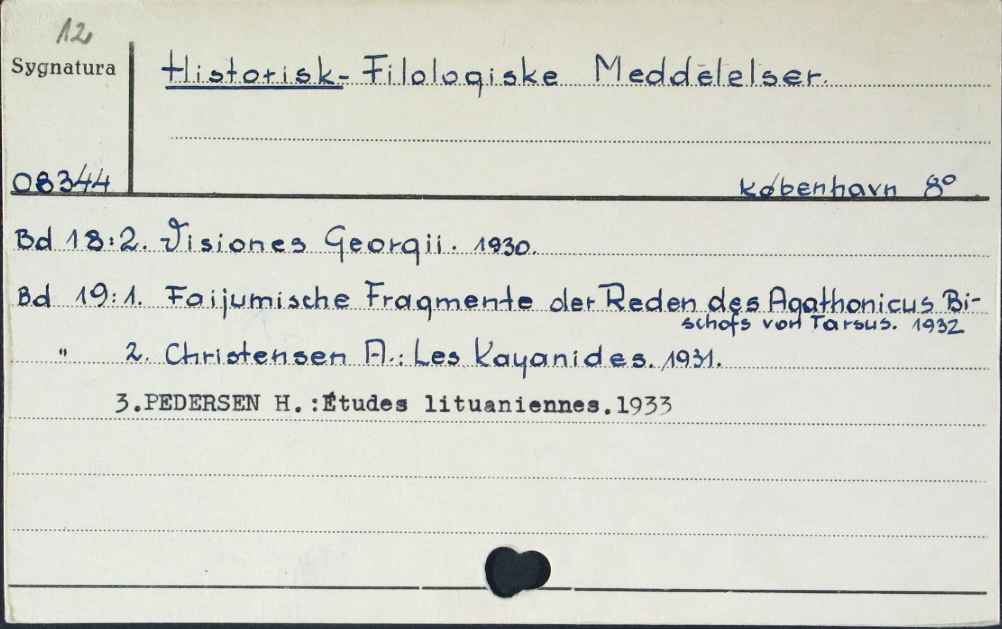 12
Sygnatura
Historisk-Filologiske Meddelelser.
08344
København 8°
Bd 18:2. Visiones Georgii. 1930.
Bd 19:1. Faijumische Fragmente der Reden des Agathonicus Bi-
schofs von Tarsus. 1932
" 2. Christensen A.: Les Kayanides. 1931.
3.PEDERSEN H.:Études lituaniennes.1933